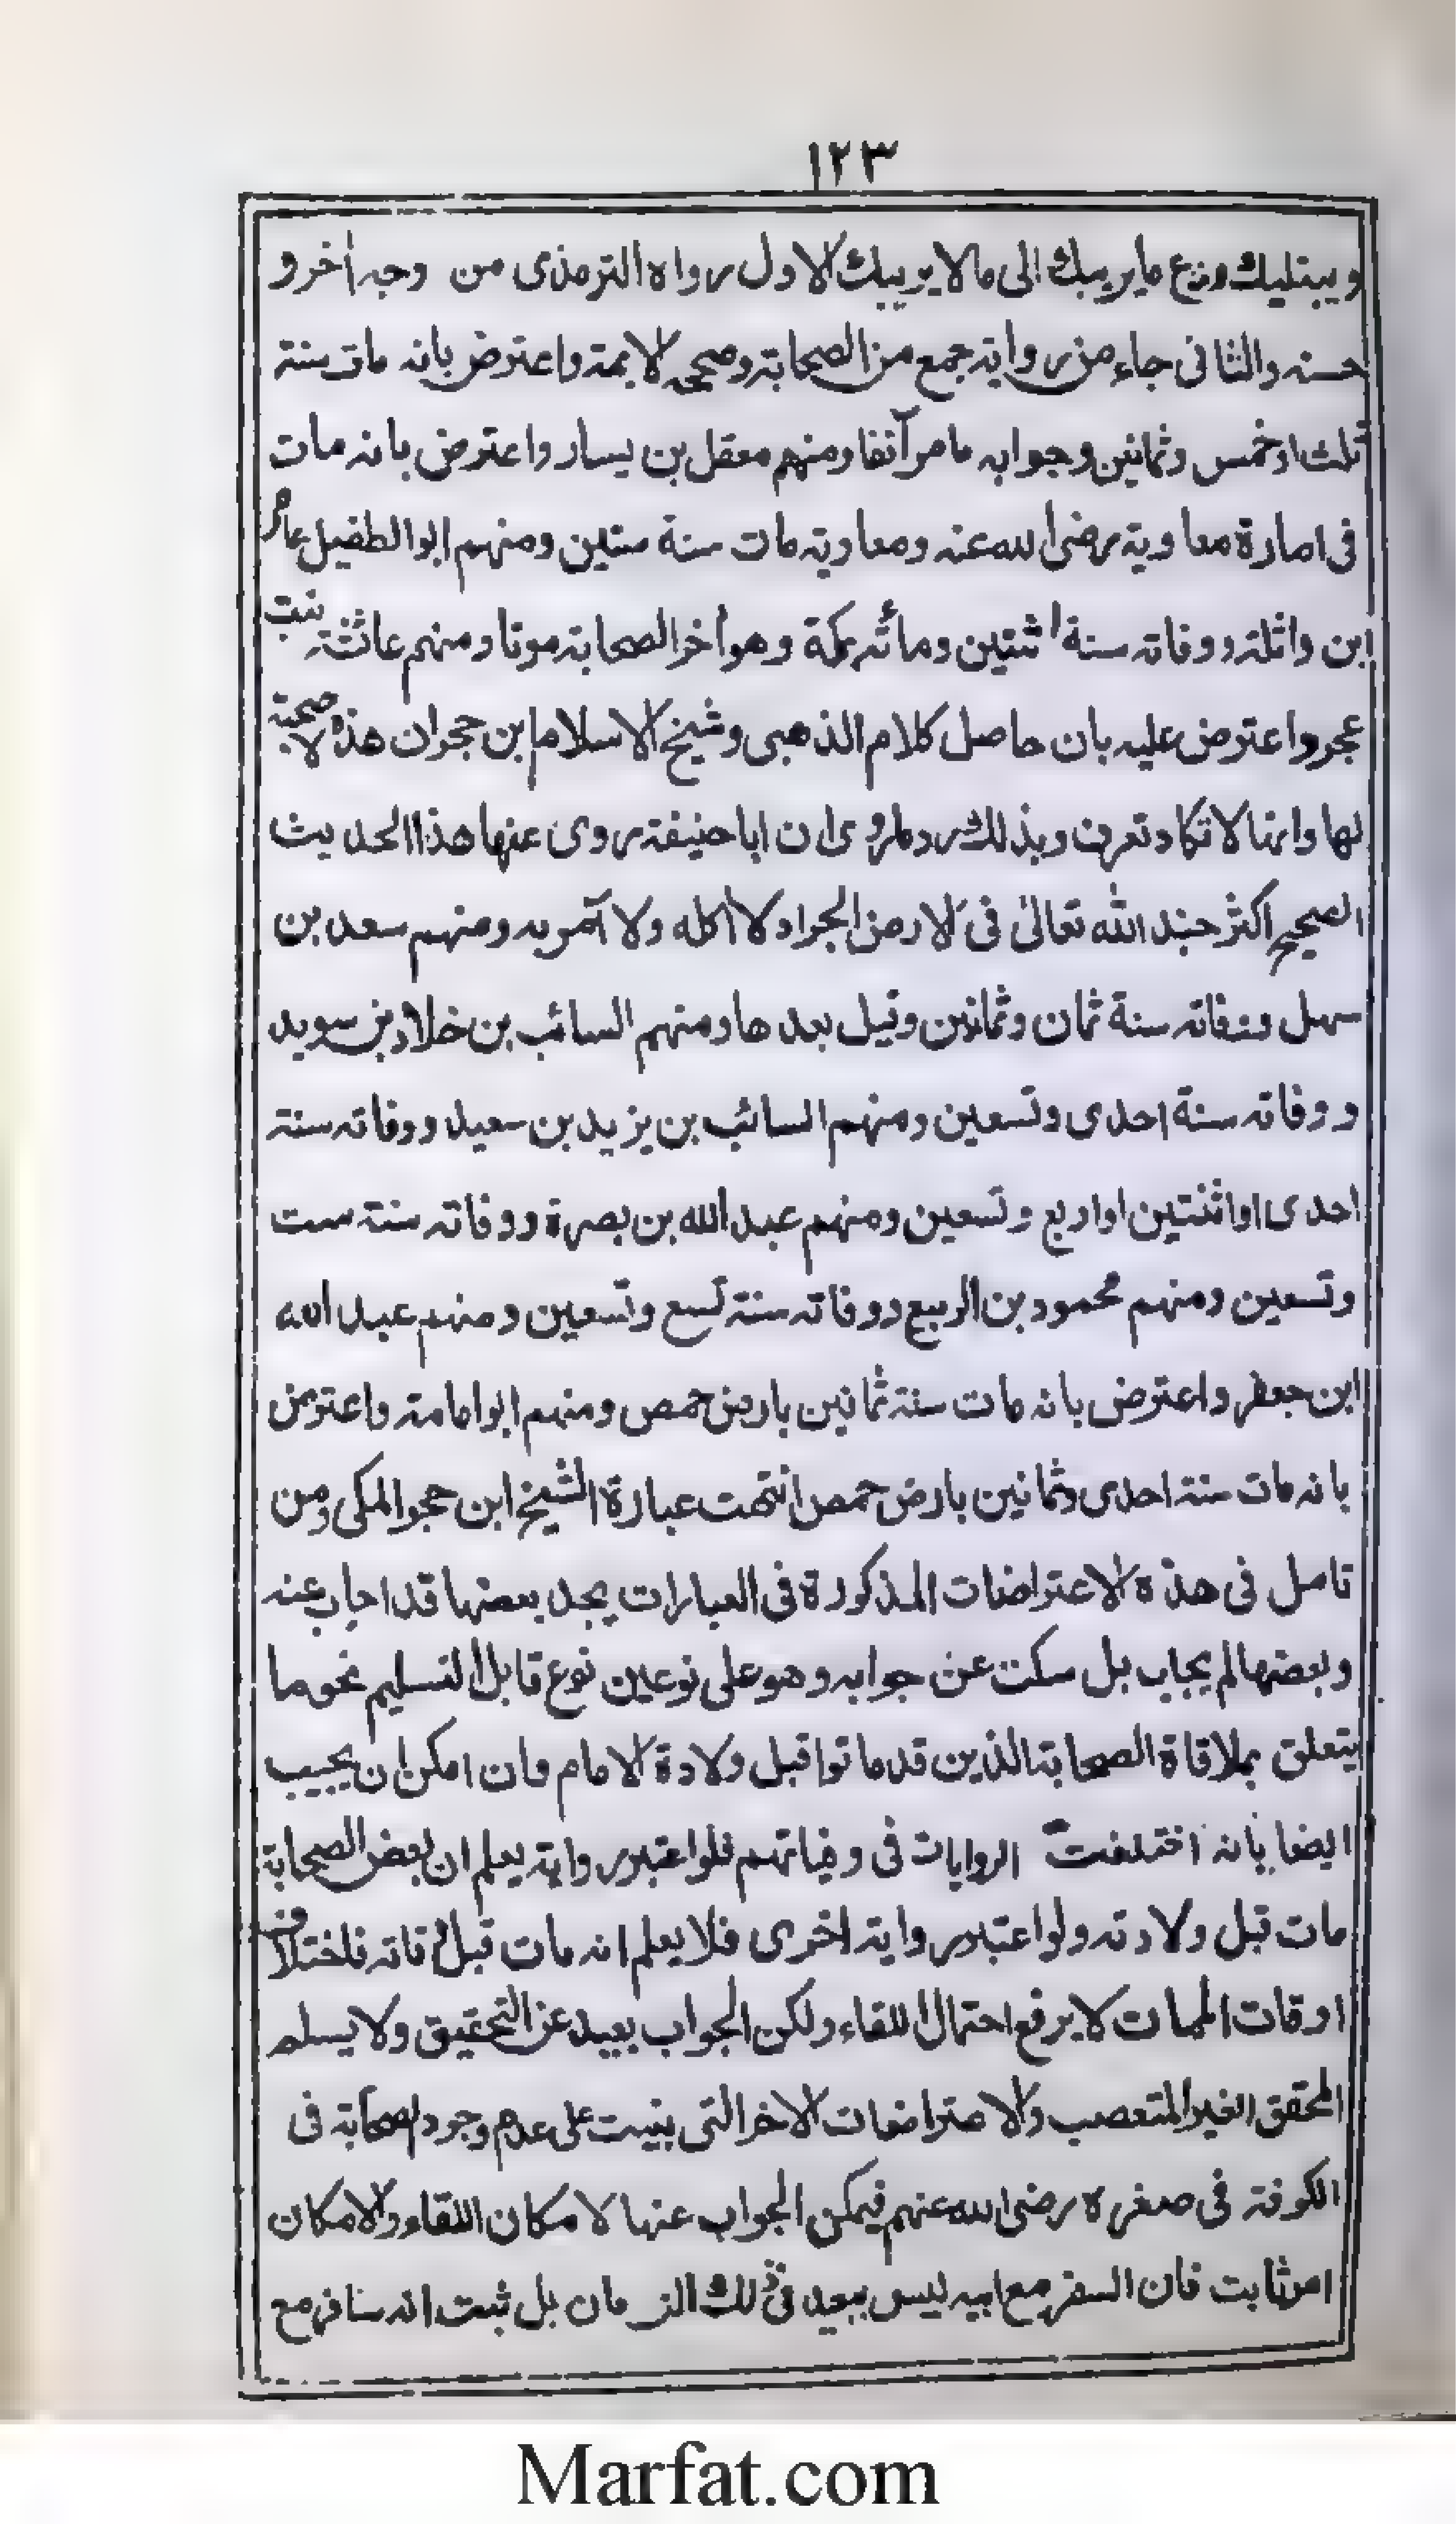 ١٢٣
ويبتليك ودع ما يريبك الى ما لا يريبك الاول رواه الترمذى من وجه اٰخر و
حسنه والثانى جاء من رواية جمع من الصحابة وصححه الايمة واعترض بانه مات سنة
ثلث او خمس وثمانين وجوابه ما مر آنفا ومنهم معقل بن يسار واعترض بانه مات
فى امارة معاوية رضى الله عنه ومعاوية مات سنة ستين ومنهم ابو الطفيل عامر
ابن واثلة ووفاته سنة اثنتين ومائه بمكة وهو اٰخر الصحابة موتا ومنهم عائشة بنت
عجرد واعترض عليه بان حاصل كلام الذهبى وشيخ الاسلام ابن حجر ان هذه لا صحبة
لها وانها لا تكاد تعرف وبذلك رد ما روى ان ابا حنيفة روى عنها هذا الحديث
الصحيح اكثر جند الله تعالىٰ فى الارض الجراد لا اٰكله ولا آمر به ومنهم سعد بن
سهل ووفاته سنة ثمان وثمانين وقيل بعدها ومنهم السائب بن خلاد بن سويد
ووفاته سنة احدى وتسعين ومنهم السائب بن يزيد بن سعيد ووفاته سنة
احدى او اثنتين او اربع وتسعين ومنهم عبد الله بن بصرة ووفاته سنة ست
وتسعين ومنهم محمود بن الربيع ووفاته سنة تسع وتسعين ومنهم عبد الله
ابن جعفر واعترض بانه مات سنة ثمانين بارض حمص ومنهم ابو امامة واعترض
بانه مات سنة احدى وثمانين بارض حمص انتهت عبارة الشيخ ابن حجر المكى ومن
تامل فى هذه الاعتراضات المذكورة فى العبارات يجد بعضها قد اجاب عنه
وبعضها لم يجاب بل سكت عن جوابه وهو على نوعين نوع قابل التسليم نحو ما
يتعلق بملاقاة الصحابة الذين قد ماتوا قبل ولادة الامام وان امكن ان يجيب
ايضا بانه اختلفت الروايات فى وفياتهم فلو اعتبر رواية يعلم ان بعض الصحابة
مات قبل ولادته ولو اعتبر رواية اخرى فلا يعلم انه مات قبل وفاته فاختلاف
اوقات الممات لا يرفع احتمال اللقاء ولكن الجواب بعيد عن التحقيق ولا يسلم
المحقق الغير المتعصب والاعتراضات الاخر التى بنيت على عدم وجود الصحابة فى
الكوفة فى صغره رضى الله عنهم فيمكن الجواب عنها لامكان اللقاء والامكان
امر ثابت فان السفر مع ابيه ليس ببعيد فى ذلك الزمان بل ثبت انه سافر مع
Marfat.com